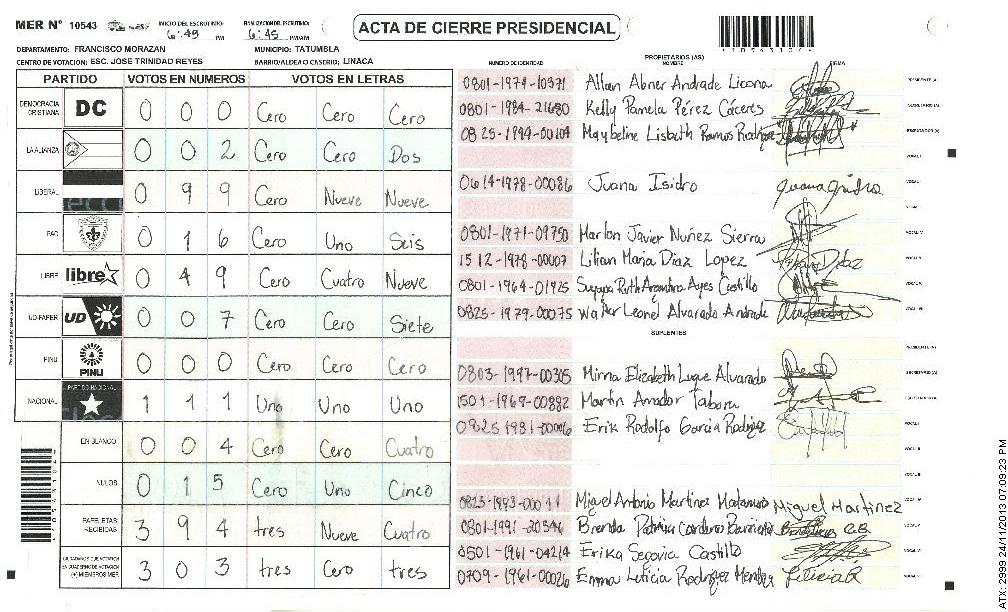 MER N° 10543
INICIO DEL ESCRUTINIO:
6:45 PM
FINALIZACION DEL ESCRUTINIO:
6:45 PM/AM
ACTA DE CIERRE PRESIDENCIAL
DEPARTAMENTO: FRANCISCO MORAZAN
MUNICIPIO: TATUMBLA
CENTRO DE VOTACION: ESC. JOSE TRINIDAD REYES
BARRIO/ALDEA O CASERIO: LINACA
PARTIDO VOTOS EN NUMEROS VOTOS EN LETRAS
DEMOCRACIA CRISTIANA DC 0 0 0 Cero Cero Cero
LA ALIANZA 0 0 2 Cero Cero Dos
LIBERAL 0 9 9 Cero Nueve Nueve
PAC 0 1 6 Cero Uno Seis
LIBRE libre 0 4 9 Cero Cuatro Nueve
UD-FAPER UD 0 0 7 Cero Cero Siete
PINU PINU 0 0 0 Cero Cero Cero
NACIONAL PARTIDO NACIONAL 1 1 1 Uno Uno Uno
EN BLANCO 0 0 4 Cero Cero Cuatro
NULOS 0 1 5 Cero Uno Cinco
PAPELETAS RECIBIDAS 3 9 4 tres Nueve Cuatro
CIUDADANOS QUE VOTARON EN CUADERNO DE VOTACION (+) MIEMBROS MER 3 0 3 tres Cero tres
PROPIETARIOS (AS)
NUMERO DE IDENTIDAD NOMBRE FIRMA
0801-1974-10371 Allan Abner Andrade Licona PRESIDENTE (A)
0801-1984-21680 Kelly Pamela Pérez Cáceres SECRETARIO (A)
0825-1994-00104 Maybeline Lisbeth Ramos Rodriguez ESCRUTADOR (A)
VOCAL I
0614-1978-00086 Juana Isidro Juana Isidro
0801-1971-09750 Marlon Javier Nuñez Sierra
1512-1978-00007 Lilian Maria Diaz Lopez
0801-1964-01925 Suyapa Ruth Ayes Castillo
0825-1979-00075 Walter Leonel Alvarado Andrade
SUPLENTES
PRESIDENTE (A)
0803-1997-00305 Mirna Elizabeth Luque Alvarado SECRETARIO (A)
1501-1969-00882 Martin Amador Tabora
0825 1981-00006 Erik Rodolfo Garcia Rodriguez
Miguel Antonio Martinez Miguel Martinez
0801-1991-20546 Brenda Patricia
0501-1961-04214 Erika Segovia Castillo
0709-1961-00026 Emma Leticia Rodriguez
ATX: 2999 24/11/2013 07:09:23 PM